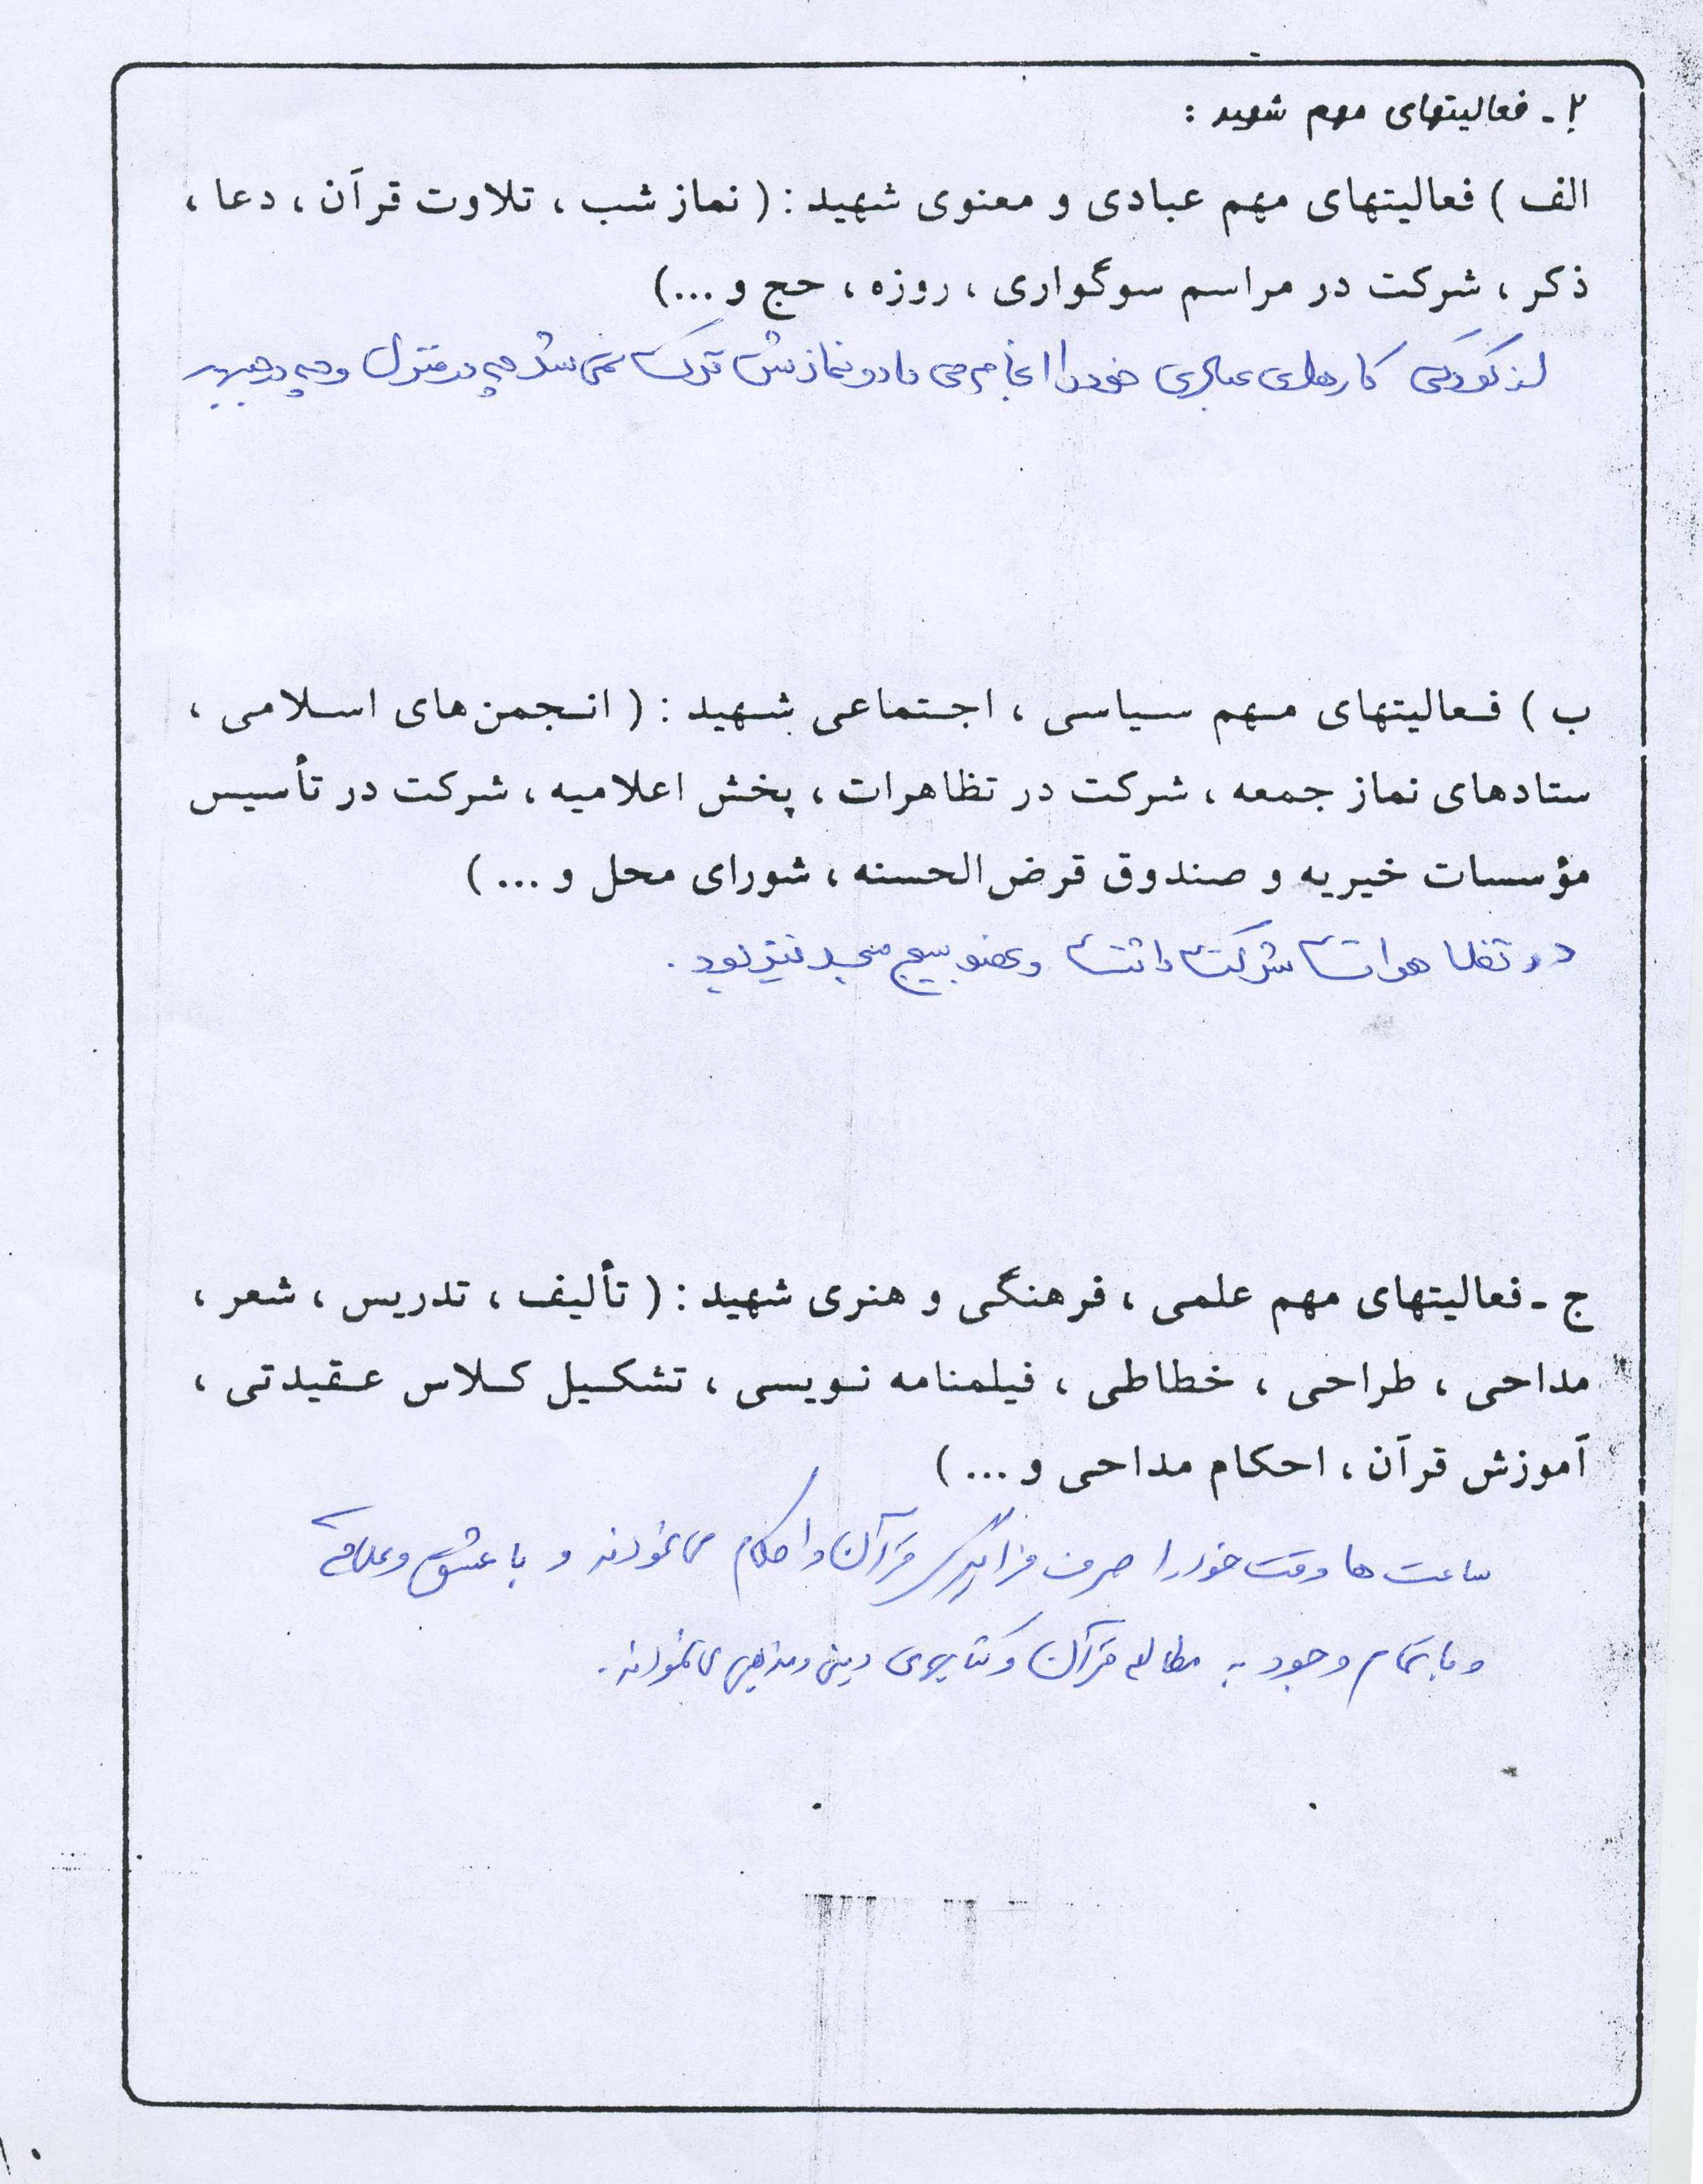 ۲ـ فعالیتهای مهم شهید :
الف ) فعالیتهای مهم عبادی و معنوی شهید : ( نماز شب ، تلاوت قرآن ، دعا ،
ذکر ، شرکت در مراسم سوگواری ، روزه ، حج و ...)
از کودکی کارهای عبادی خود را انجام می داد و نمازش ترک نمی شد چه در منزل و چه در جبهه
ب ) فعالیتهای مهم سیاسی ، اجتماعی شهید : ( انجمن های اسلامی ،
ستادهای نماز جمعه ، شرکت در تظاهرات ، پخش اعلامیه ، شرکت در تأسیس
مؤسسات خیریه و صندوق قرض الحسنه ، شورای محل و ... )
در تظاهرات شرکت داشت و عضو بسیج مسجد نیز بود .
ج ـ فعالیتهای مهم علمی ، فرهنگی و هنری شهید : ( تألیف ، تدریس ، شعر ،
مداحی ، طراحی ، خطاطی ، فیلمنامه نویسی ، تشکیل کلاس عقیدتی ،
آموزش قرآن ، احکام مداحی و ... )
ساعت ها وقت خود را صرف فراگیری قرآن و احکام می نمودند و با عشق و علاقه
و با تمام وجود به مطالعه قرآن و کتابهای دینی و مذهبی می نمودند .
۱۰